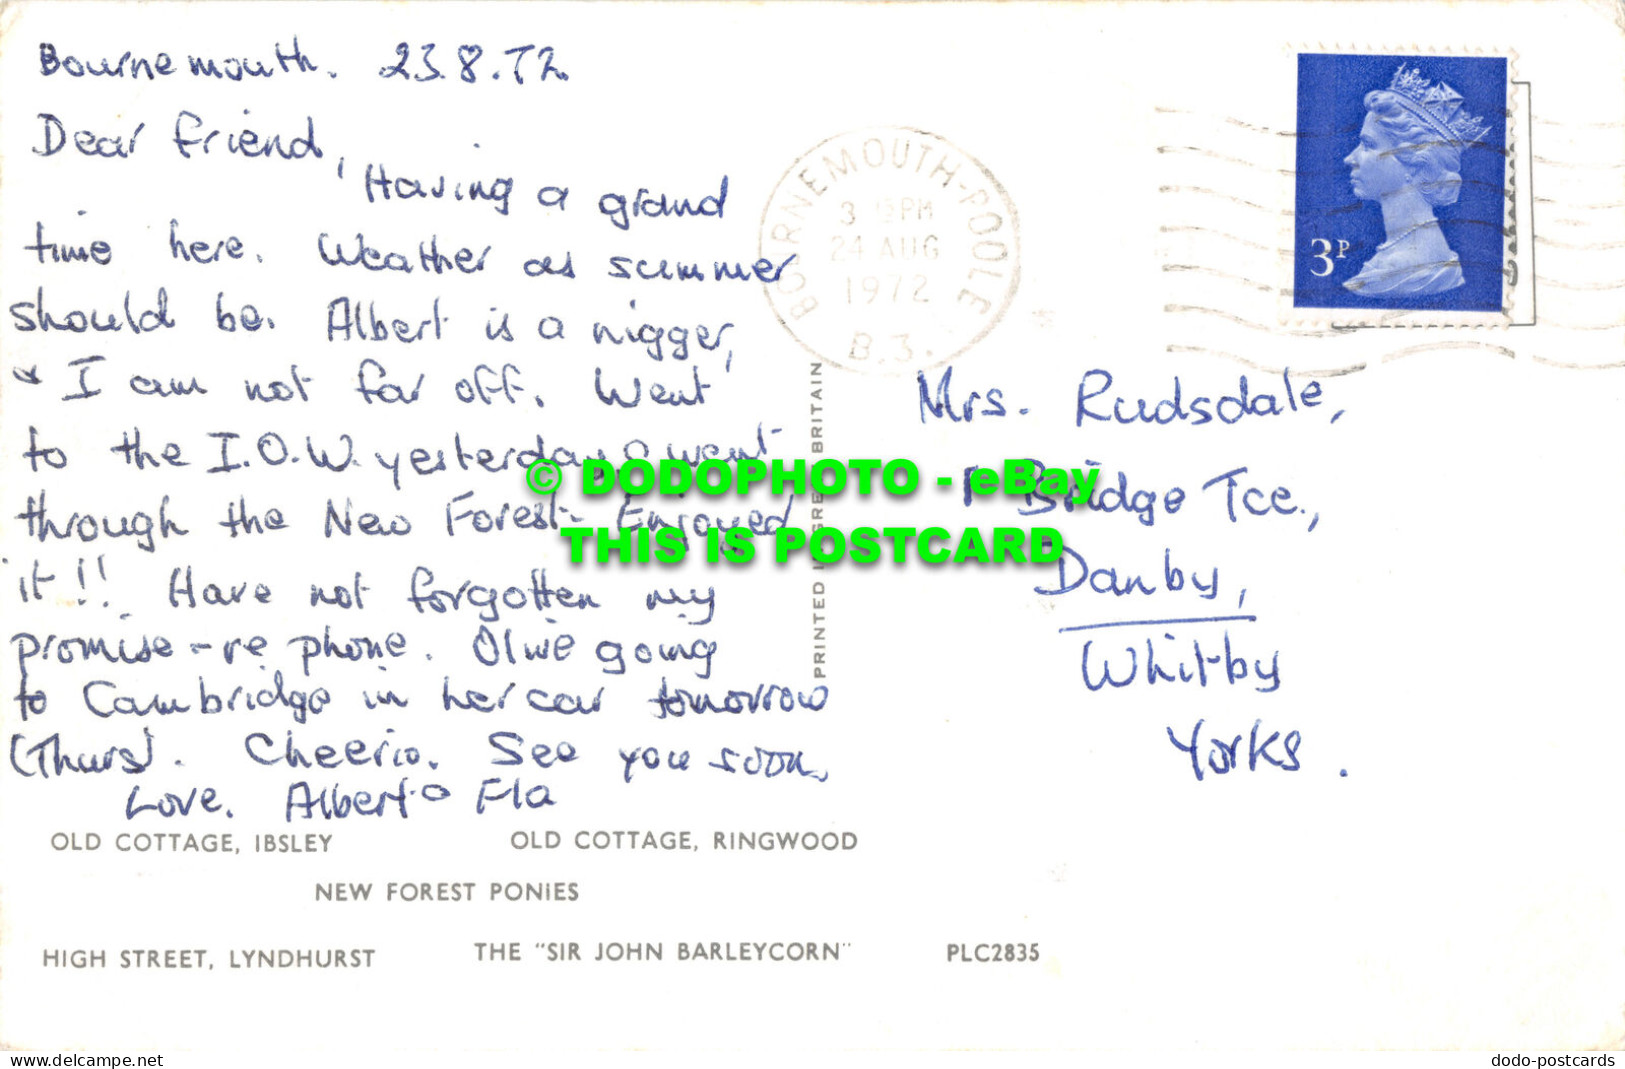 Bournemouth. 23.8.72.
Dear friend,
Having a grand
time here. Weather as summer
should be. Albert is a nigger,
& I am not far off. Went
to the I.O.W. yesterday & went
through the New Forest. Enjoyed
it!! Have not forgotten my
promise - re phone. Olive going
to Cambridge in her car tomorrow
(Thurs). Cheerio. See you soon.
Love. Albert & Fla
OLD COTTAGE, IBSLEY
OLD COTTAGE, RINGWOOD
NEW FOREST PONIES
HIGH STREET, LYNDHURST
THE "SIR JOHN BARLEYCORN"
PLC2835
PRINTED IN GREAT BRITAIN
BOURNEMOUTH-POOLE
PM
24 AUG
1972
B.3.
3P
Mrs. Rudsdale,
1 Bridge Tce.,
Danby,
Whitby
Yorks.
© DODOPHOTO - eBay
THIS IS POSTCARD
www.delcampe.net
dodo-postcards